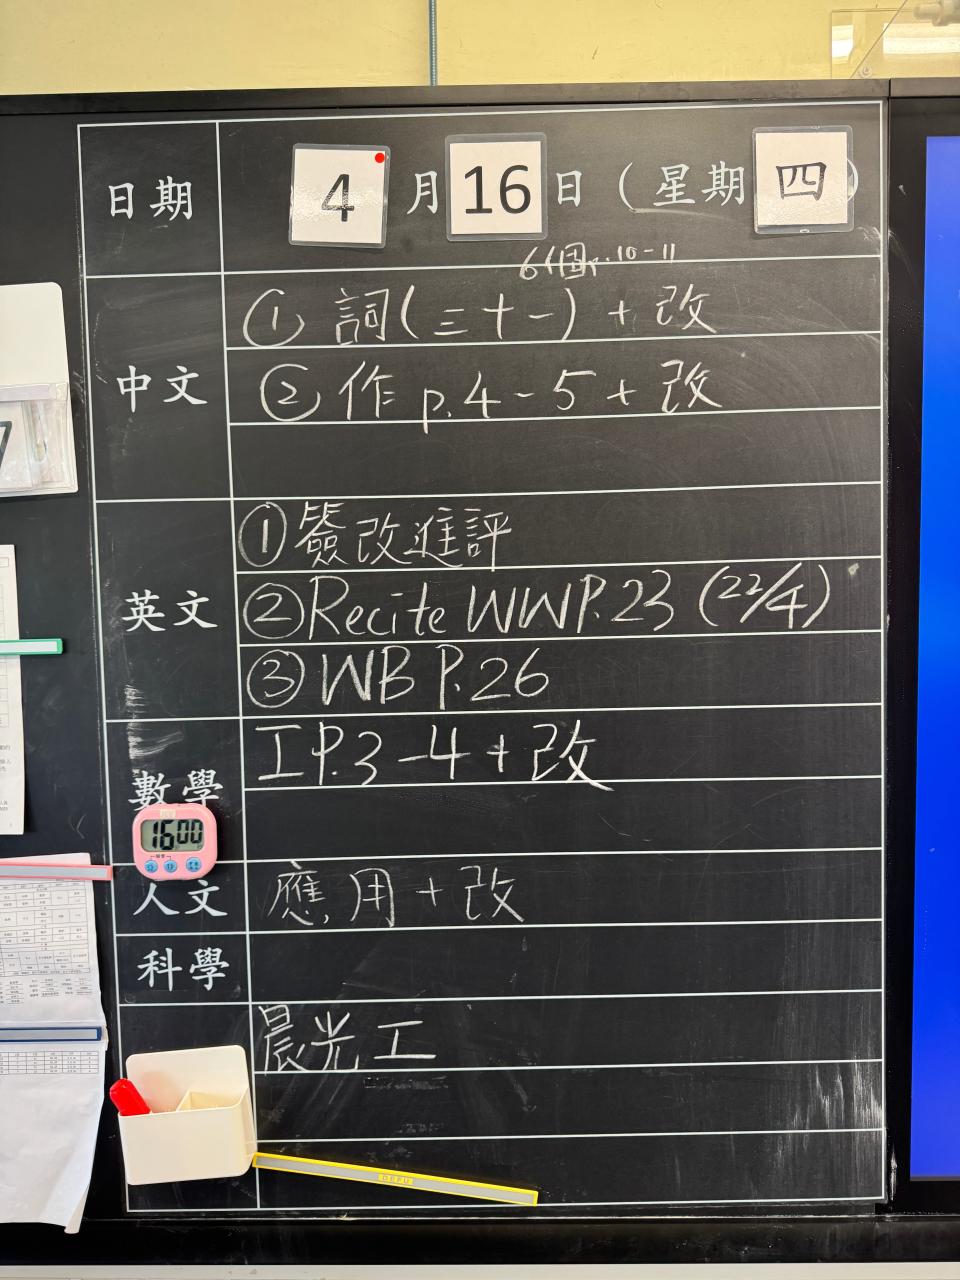 日期 4 月 16 日 ( 星期 四 )
6個 p.10-11
中文
① 詞(三十一) + 改
② 作 p.4-5 + 改
英文
① 簽改進評
② Recite WW P.23 (22/4)
③ WB P.26
數學
工 P.3-4 + 改
1600
人文
應用 + 改
科學
晨光工
DEFU
7